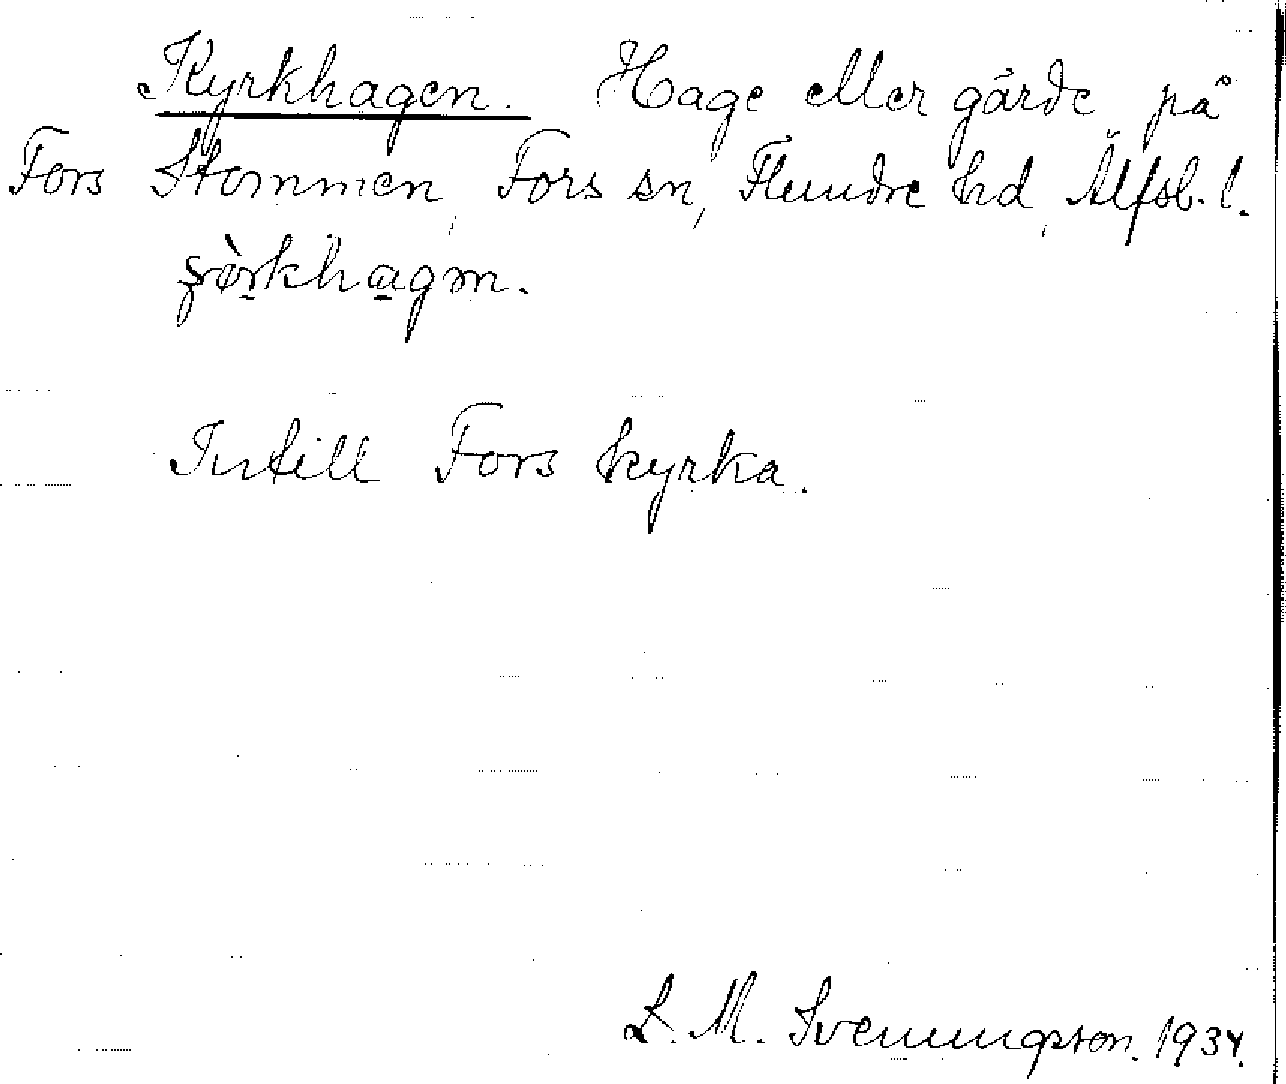 Kyrkhagen. Hage eller gärde på
Fors Stommen, Fors sn, Flundre hd, Älfsb. l.
Intill Fors kyrka.
L. M. Svenungsson. 1934.